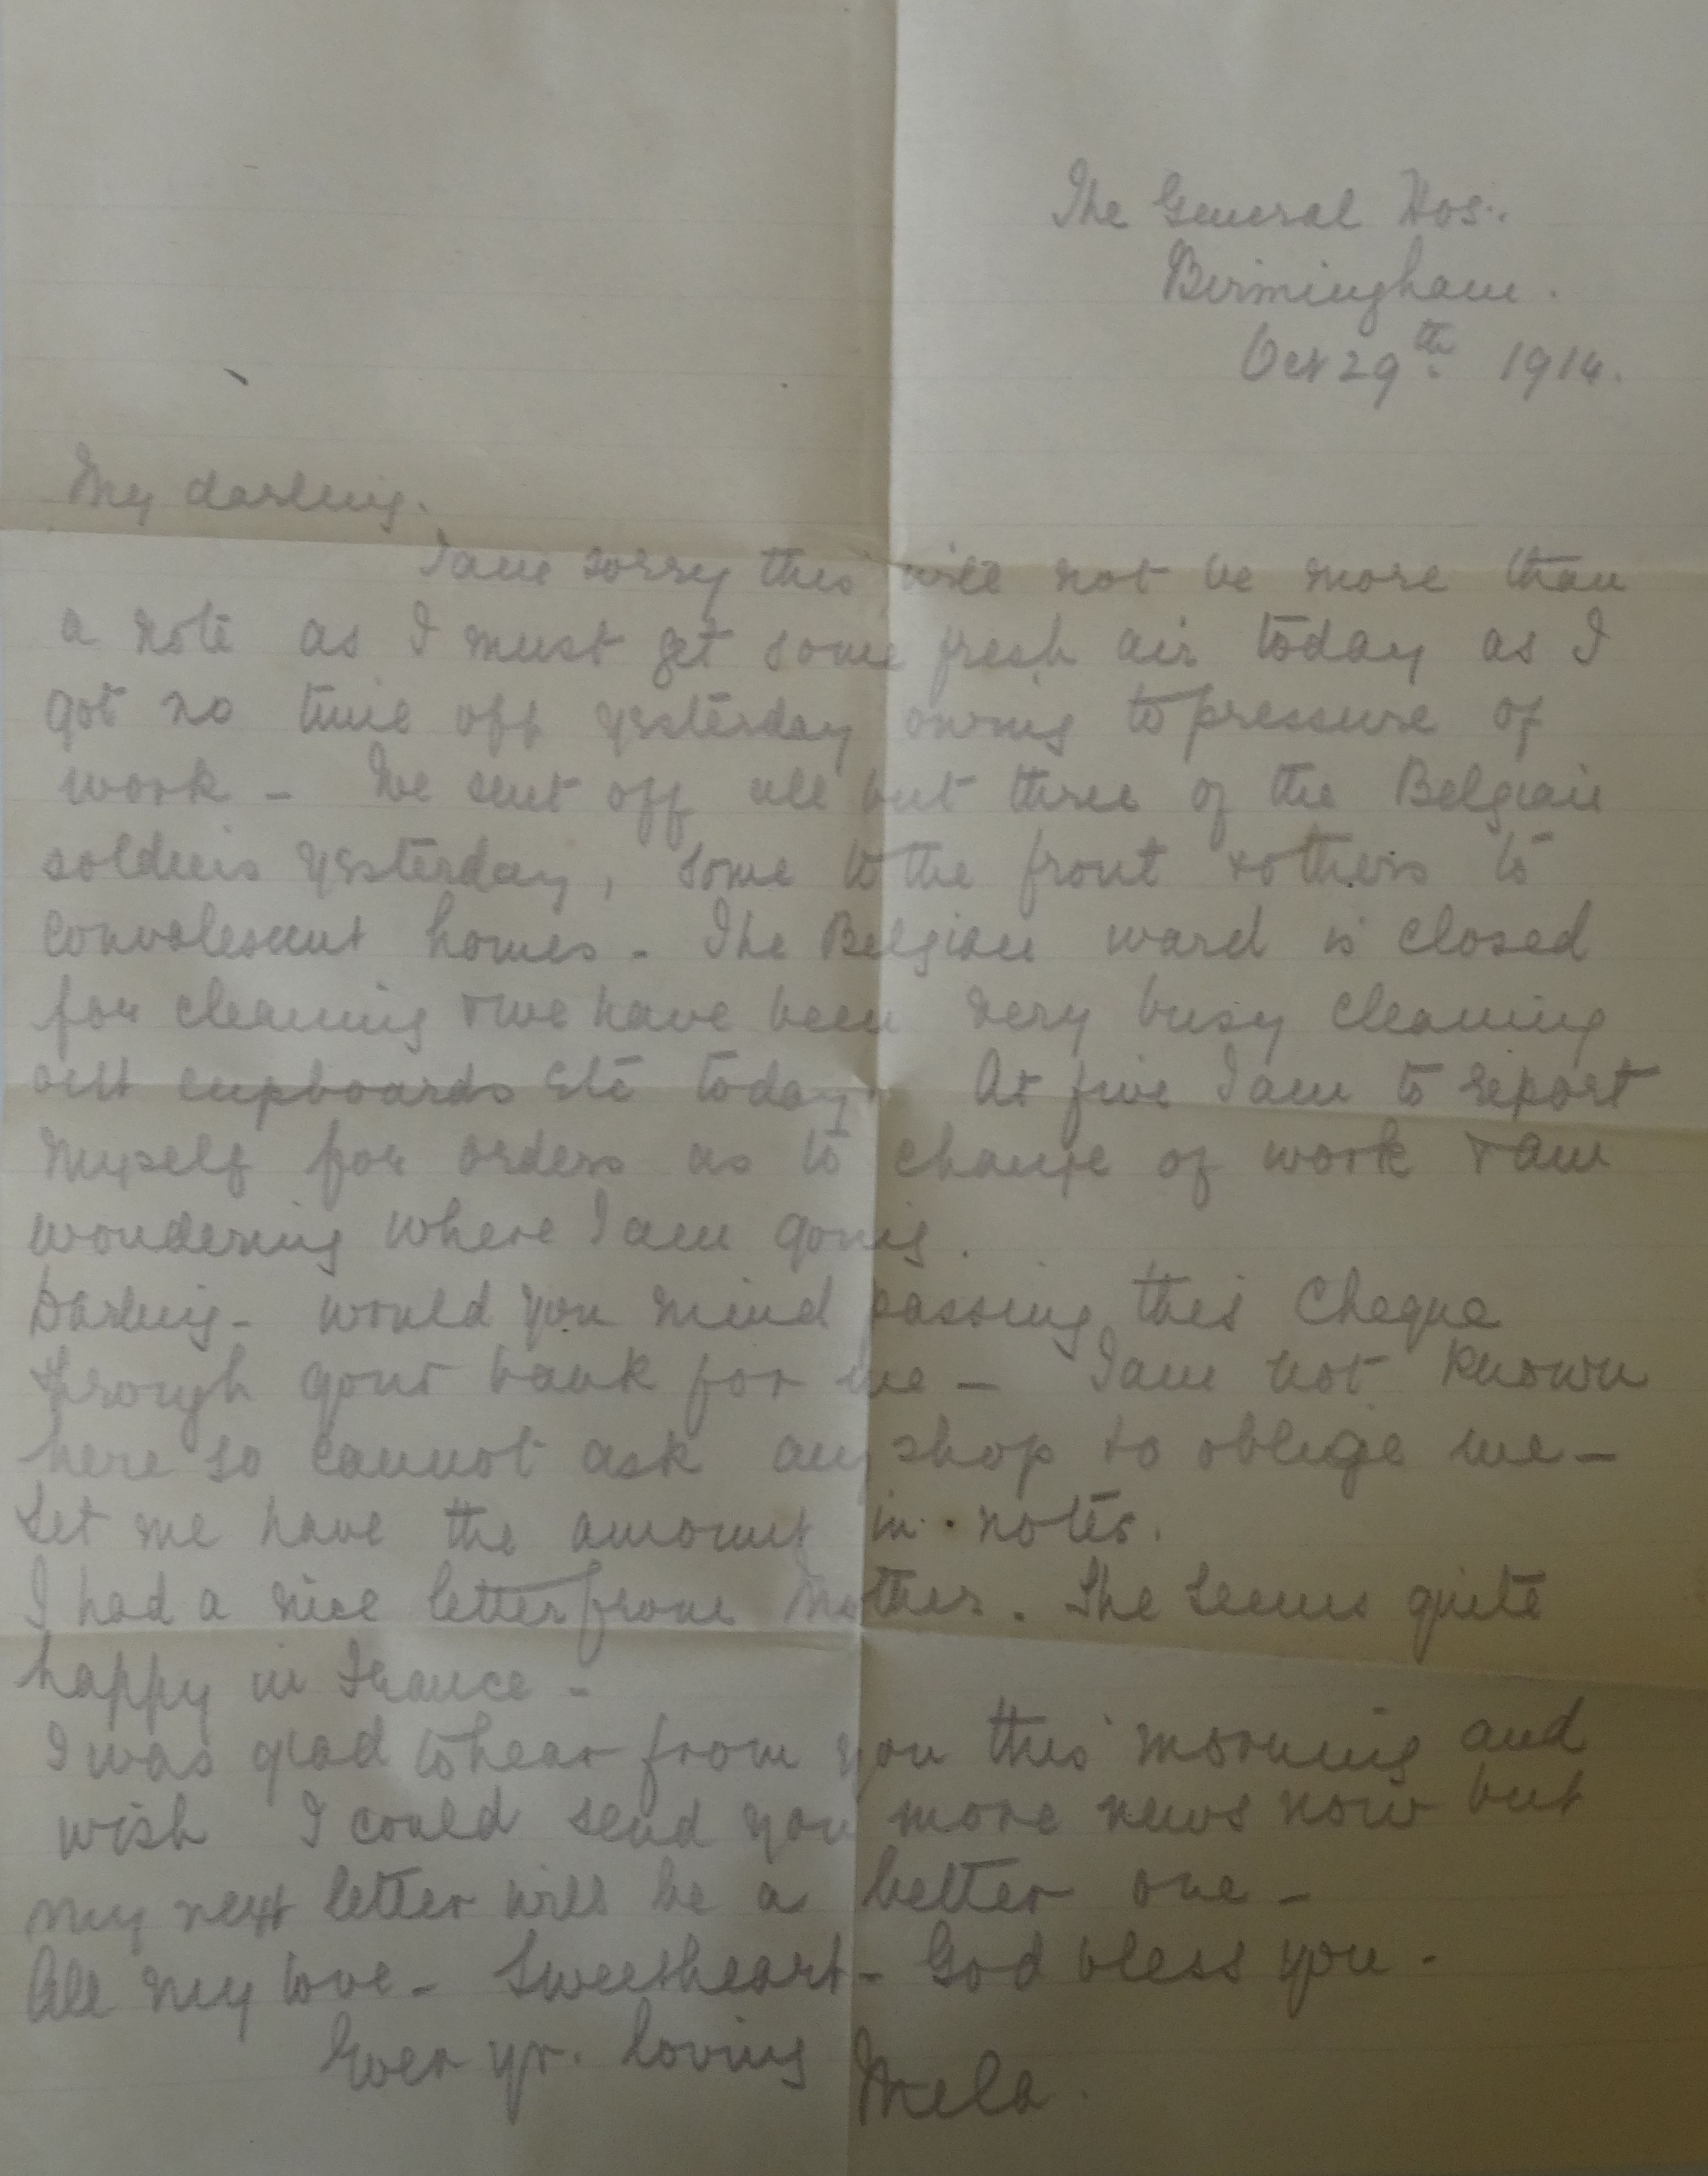 The General Hos:.
Birmingham.
Oct 29th. 1914.
My darling.
I am sorry this will not be more than
a note as I must get some fresh air today as I
got no time off yesterday owing to pressure of
work - We sent off all but three of the Belgian
soldiers yesterday, some to the front & others to
convalescent homes - The Belgian ward is closed
for cleaning & we have been very busy cleaning
out cupboards etc today. At five I am to report
myself for orders as to change of work & am
wondering where I am going.
Darling - would you mind passing this cheque
through your bank for me - I am not known
here so cannot ask any shop to oblige me -
Let me have the amount in notes.
I had a nice letter from Mother. She seems quite
happy in France -
I was glad to hear from you this morning and
wish I could send you more news now but
my next letter will be a better one -
All my love - Sweetheart - God bless you -
Ever yr. loving Mela.